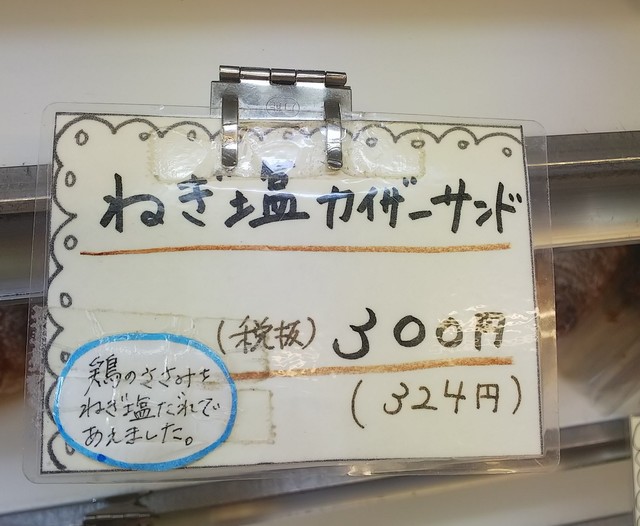 ねぎ塩カイザーサンド
(税抜) 300円
(324円)
鶏のささみを
ねぎ塩だれで
あえました。